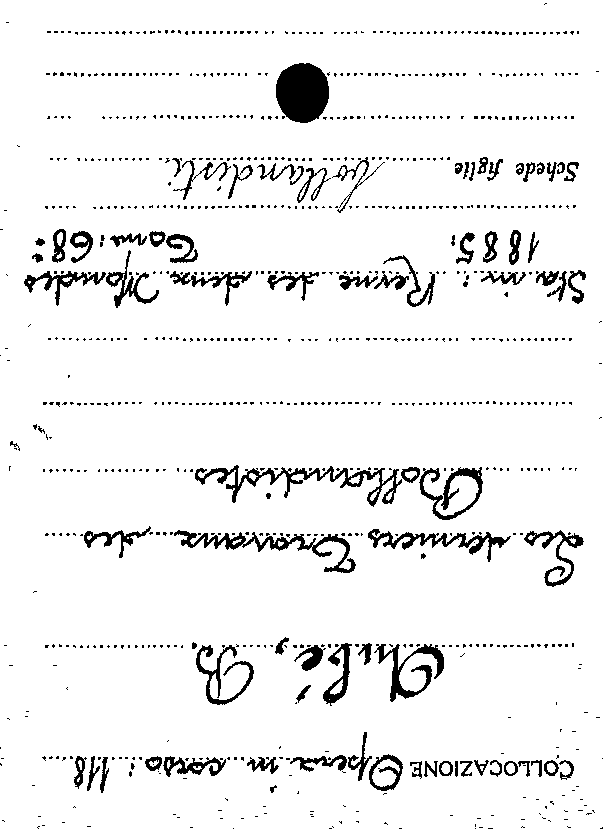 COLLOCAZIONE Opera in corso: 118
Aubé, B.
Les derniers Travaux des
Bollandistes
Sta in: Revue des deux Mondes
1885. Tom: 68:
Schede figlie bollandisti